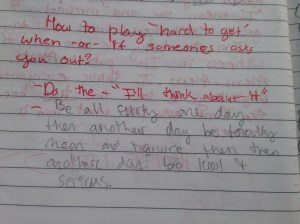 How to play "hard to get"
when -or- if someones asks
you out?
- Do the - "I'll think about it"
- Be all flirty one day,
then another day be totally
mean and ignore then then
another day be kool &
serious.